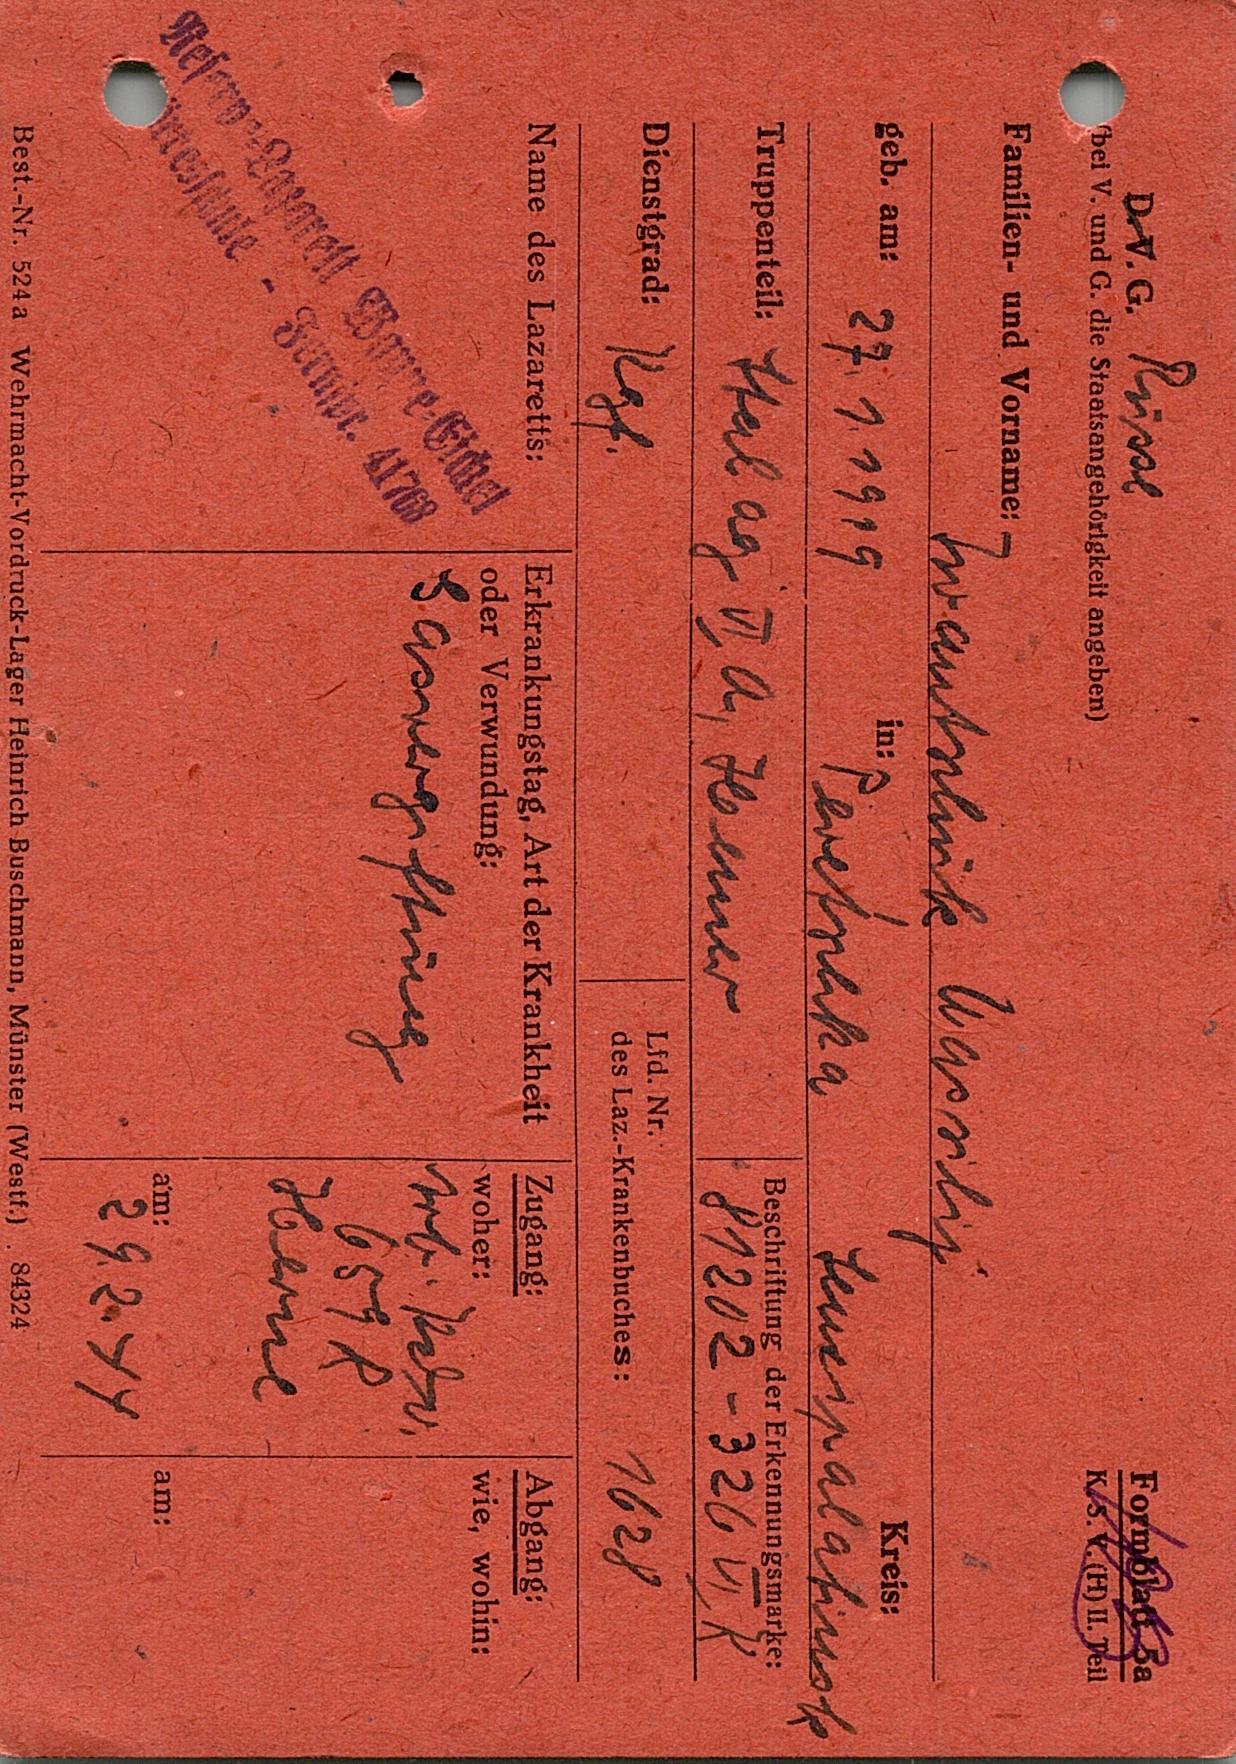 D.V.G. Russe
(bei V. und G. die Staatsangehörigkeit angeben)
Formblatt 5a
K. S. V. (H) II. Teil
Familien- und Vorname: Wassilij
geb. am: 27.1.1919 in: Kreis:
Truppenteil: Stalag VI A, Hemer
Beschriftung der Erkennungsmarke:
81202 - 326 VI, K
Dienstgrad: Kgf.
Lfd. Nr.
des Laz.-Krankenbuches: 1628
Name des Lazaretts:
Reserve-Lazarett Wanne-Eickel
- Fernspr. 41768
Erkrankungstag, Art der Krankheit
oder Verwundung:
Gasvergiftung
Zugang:
woher:
Arb. Kdo.
659 R
Herne
am:
29.2.44
Abgang:
wie, wohin:
am:
Best.-Nr. 524a Wehrmacht-Vordruck-Lager Heinrich Buschmann, Münster (Westf.) . 84324